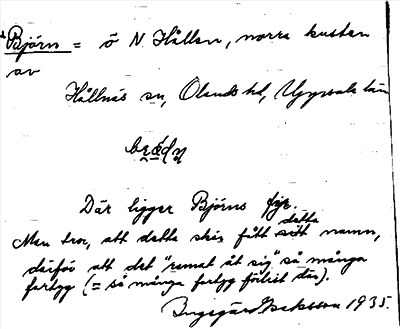 Björn = ö N Hållen, norra kusten
av
Hållnäs sn, Olands hd, Uppsala län
Där ligger Björns fyr.
Man tror, att detta skär fått detta sitt namn,
därför att det "ramat åt sig" så många
fartyg (= så många fartyg förlist där).
Ingegärd Isaksson 1935.